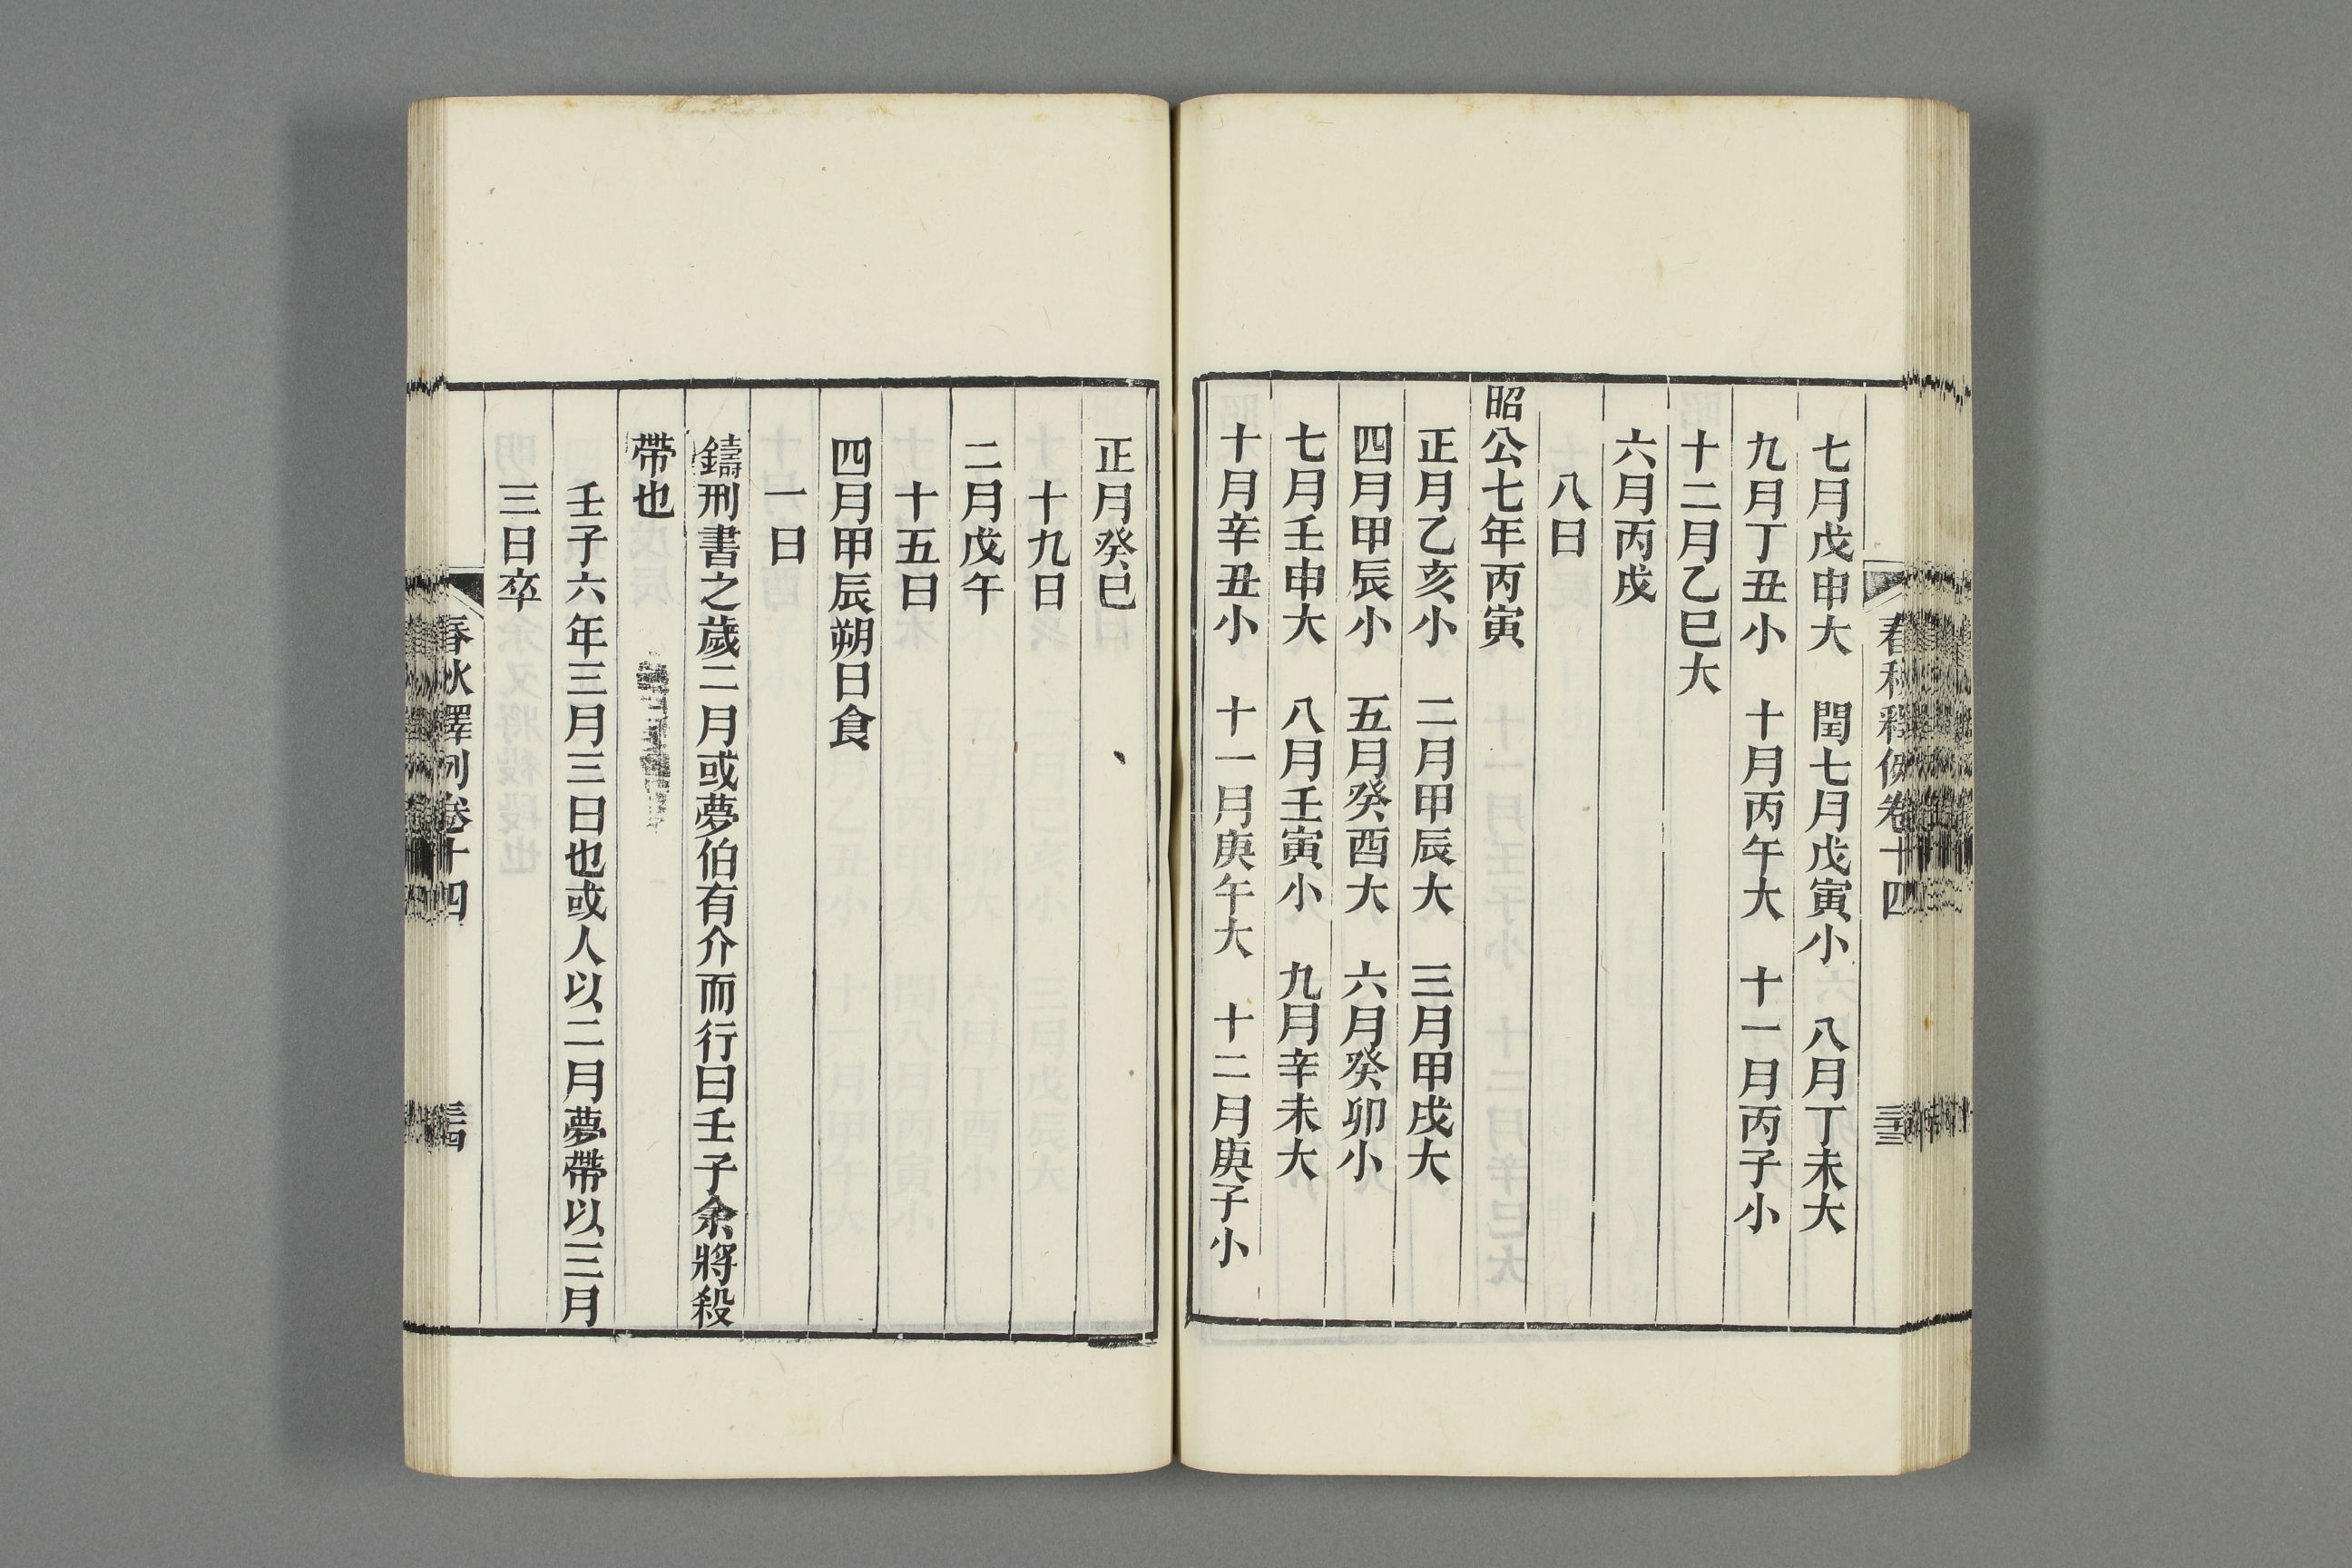 春秋釋例卷十四 三十三
七月戊申大 閏七月戊寅小 八月丁未大
九月丁丑小 十月丙午大 十一月丙子小
十二月乙巳大
六月丙戌
八日
昭公七年丙寅
正月乙亥小 二月甲辰大 三月甲戌大
四月甲辰小 五月癸酉大 六月癸卯小
七月壬申大 八月壬寅小 九月辛未大
十月辛丑小 十一月庚午大 十二月庚子小
正月癸巳
十九日
二月戊午
十五日
四月甲辰朔日食
一日
鑄刑書之歲二月或夢伯有介而行曰壬子余將殺
帶也
壬子六年三月三日也或人以二月夢帶以三月
三日卒
春秋釋例卷十四 三十四